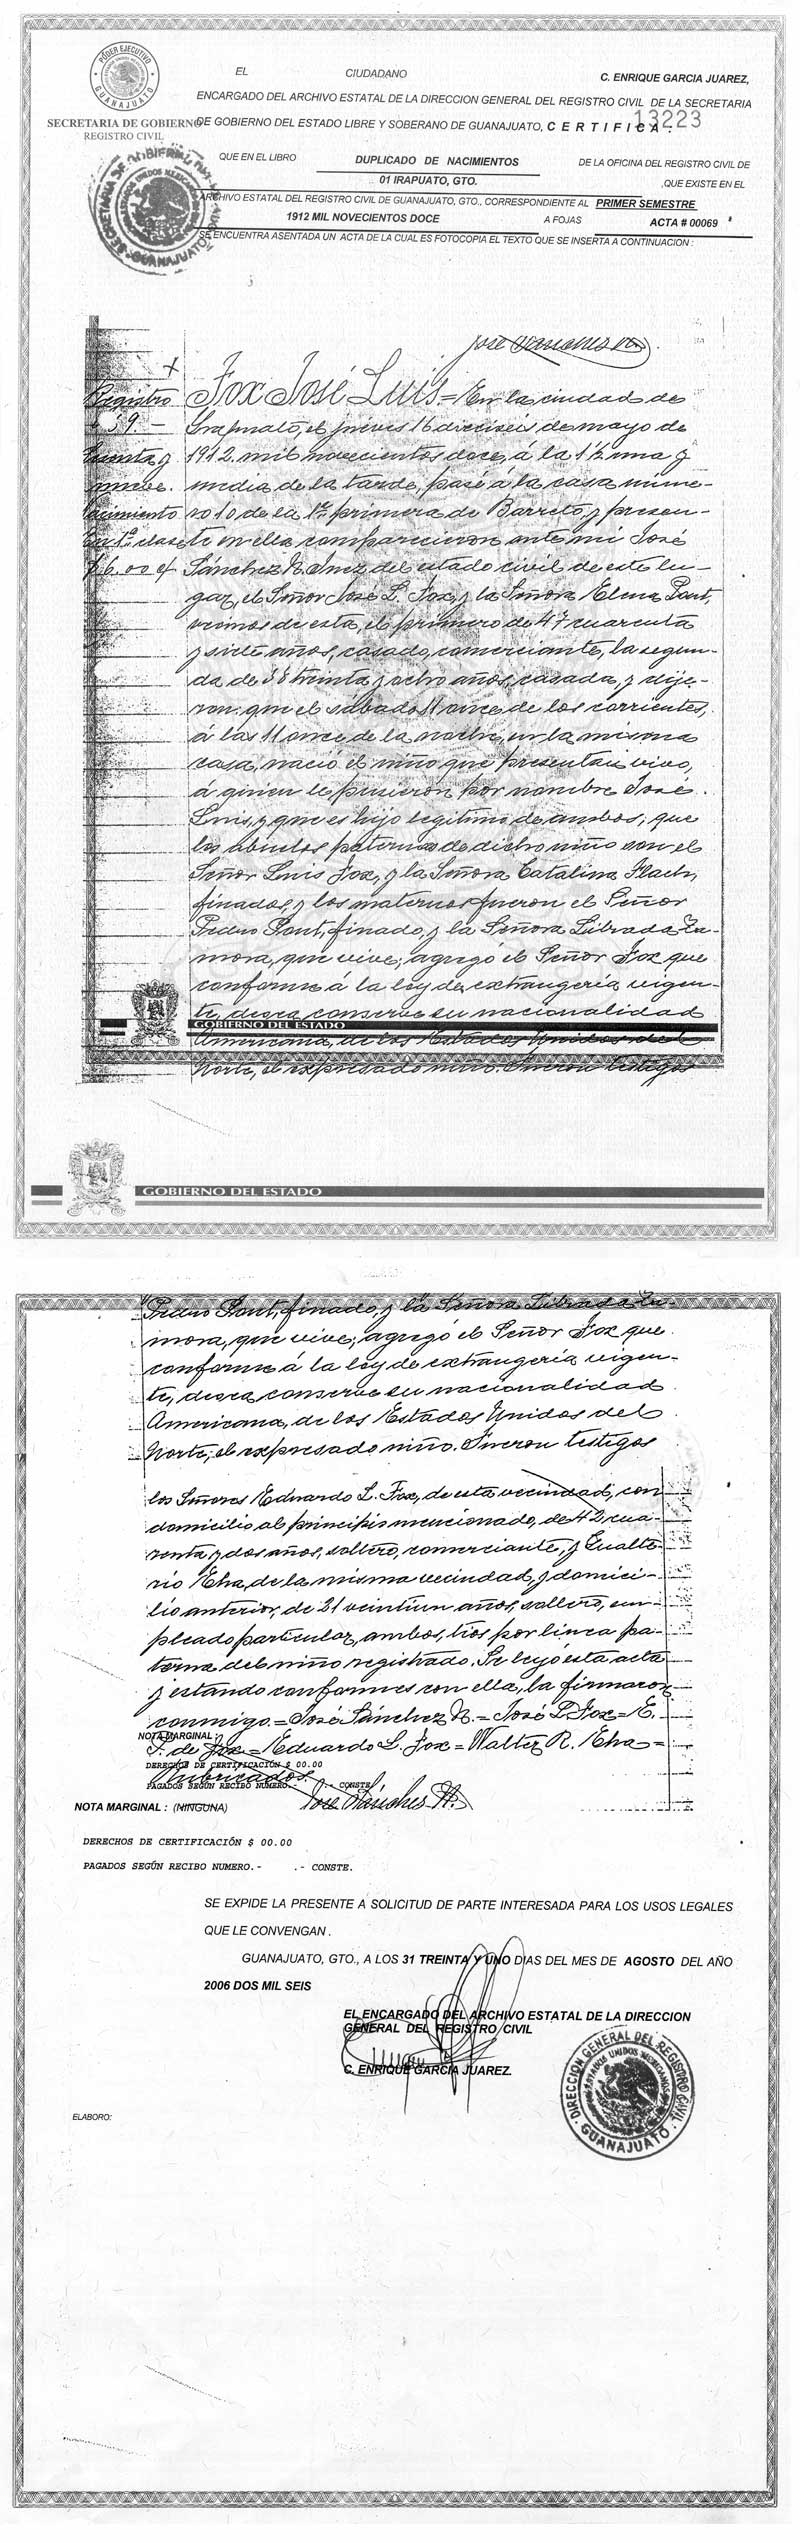 PODER EJECUTIVO
GUANAJUATO
SECRETARIA DE GOBIERNO
REGISTRO CIVIL
EL CIUDADANO C. ENRIQUE GARCIA JUAREZ,
ENCARGADO DEL ARCHIVO ESTATAL DE LA DIRECCION GENERAL DEL REGISTRO CIVIL DE LA SECRETARIA
DE GOBIERNO DEL ESTADO LIBRE Y SOBERANO DE GUANAJUATO, CERTIFICA:
13223
QUE EN EL LIBRO DUPLICADO DE NACIMIENTOS DE LA OFICINA DEL REGISTRO CIVIL DE
01 IRAPUATO, GTO. ,QUE EXISTE EN EL
ARCHIVO ESTATAL DEL REGISTRO CIVIL DE GUANAJUATO, GTO., CORRESPONDIENTE AL PRIMER SEMESTRE
1912 MIL NOVECIENTOS DOCE A FOJAS ACTA # 00069
SE ENCUENTRA ASENTADA UN ACTA DE LA CUAL ES FOTOCOPIA EL TEXTO QUE SE INSERTA A CONTINUACION :
Registro
nueve.
Fox José Luis = En la ciudad de
Irapuato, el jueves 16 dieciseis de mayo de
1912 mil novecientos doce, á la 1½ una y
media de la tarde, pasé á la casa núme-
ro 10 de la 1ra primera de Barreto, y presen-
te en ella comparecieron ante mi José
Sánchez N. Juez del estado civil de este lu-
gar, el Señor José L. Fox, y la Señora Elena Pont,
vecinos de esta, el primero de 47 cuarenta
y siete años, casado, comerciante, la segun-
da de 38 treinta y ocho años, casada, y dije-
ron: que el sábado 11 once de los corrientes,
á las 11 once de la noche, en la misma
casa, nació el niño que presentan vivo,
á quien le pusieron por nombre José
Luis, y que es hijo legítimo de ambos, que
los abuelos paternos de dicho niño son el
Señor Luis Fox, y la Señora Catalina Flach,
finados, y los maternos fueron el Señor
Pedro Pont, finado, y la Señora Librada Za-
mora, que vive; agregó el Señor Fox que
conforme á la ley de extrangería vigen-
te, desea conserve su nacionalidad
Americana, de los Estados Unidos del
Norte, el expresado niño. Fueron testigos
GOBIERNO DEL ESTADO
GOBIERNO DEL ESTADO
Pedro Pont, finado, y la Señora Librada Za-
mora, que vive; agregó el Señor Fox que
conforme á la ley de extrangería vigen-
te, desea conserve su nacionalidad
Americana, de los Estados Unidos del
Norte, el expresado niño. Fueron testigos
los Señores Eduardo L. Fox, de esta vecindad, con
domicilio al principio mencionado, de 42 cua-
renta y dos años, soltero, comerciante, y Gualte-
rio Eha, de la misma vecindad, y domici-
lio anterior, de 21 veintiun años, soltero, em-
pleado particular, ambos, tios por linea pa-
terna del niño registrado. Se leyó esta acta
y estando conformes con ella, la firmaron
conmigo. = José Sánchez N. = José L. Fox = E.
P. de Fox = Eduardo L. Fox = Walter R. Eha =
Rubricados.
José Sánchez N.
NOTA MARGINAL :
DERECHOS DE CERTIFICACIÓN $ 00.00
PAGADOS SEGÚN RECIBO NUMERO.- .- CONSTE.
NOTA MARGINAL : (NINGUNA)
DERECHOS DE CERTIFICACIÓN $ 00.00
PAGADOS SEGÚN RECIBO NUMERO.- .- CONSTE.
SE EXPIDE LA PRESENTE A SOLICITUD DE PARTE INTERESADA PARA LOS USOS LEGALES
QUE LE CONVENGAN .
GUANAJUATO, GTO., A LOS 31 TREINTA Y UNO DIAS DEL MES DE AGOSTO DEL AÑO
2006 DOS MIL SEIS
EL ENCARGADO DEL ARCHIVO ESTATAL DE LA DIRECCION
GENERAL DEL REGISTRO CIVIL
C. ENRIQUE GARCIA JUAREZ.
DIRECCIÓN GENERAL DEL REGISTRO CIVIL
ESTADOS UNIDOS MEXICANOS
GUANAJUATO
ELABORO: